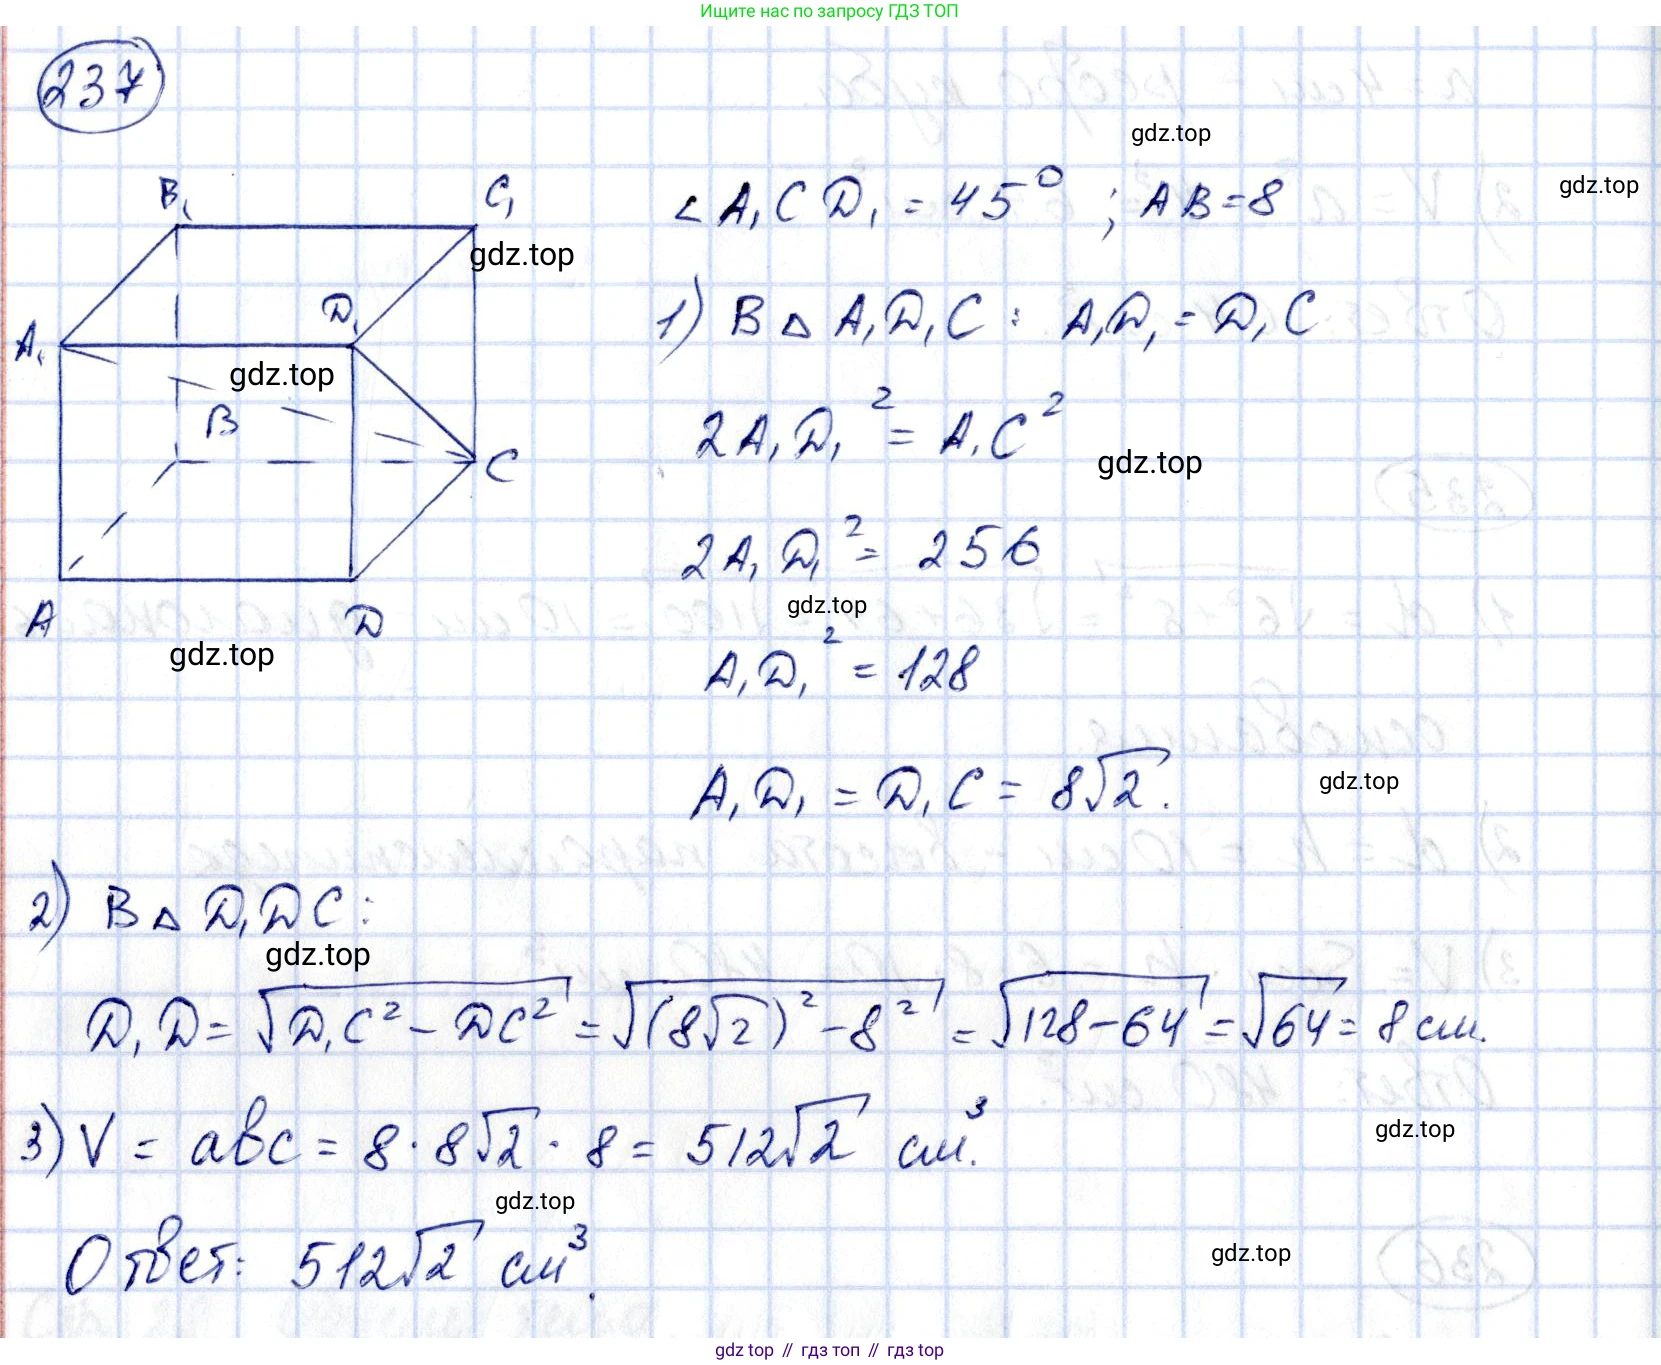 Ищите нас по запросу ГДЗ ТОП
237
gdz.top
∠A₁CD₁ = 45⁰ ; AB=8
gdz.top
B₁ C₁
gdz.top
1) В △ A₁D₁C : A₁D₁ = D₁C
A₁ D₁
gdz.top
2A₁D₁² = A₁C²
B
gdz.top
C
2A₁D₁² = 256
gdz.top
A D
gdz.top
A₁D₁² = 128
A₁D₁ = D₁C = 8√2.
gdz.top
2) В △ D₁DC:
gdz.top
D₁D = √(D₁C² - DC²) = √((8√2)² - 8²) = √(128-64) = √64 = 8 см.
3) V = abc = 8 · 8√2 · 8 = 512√2 см³.
gdz.top
gdz.top
Ответ: 512√2 см³.
gdz.top
gdz top // гдз топ // гдз top